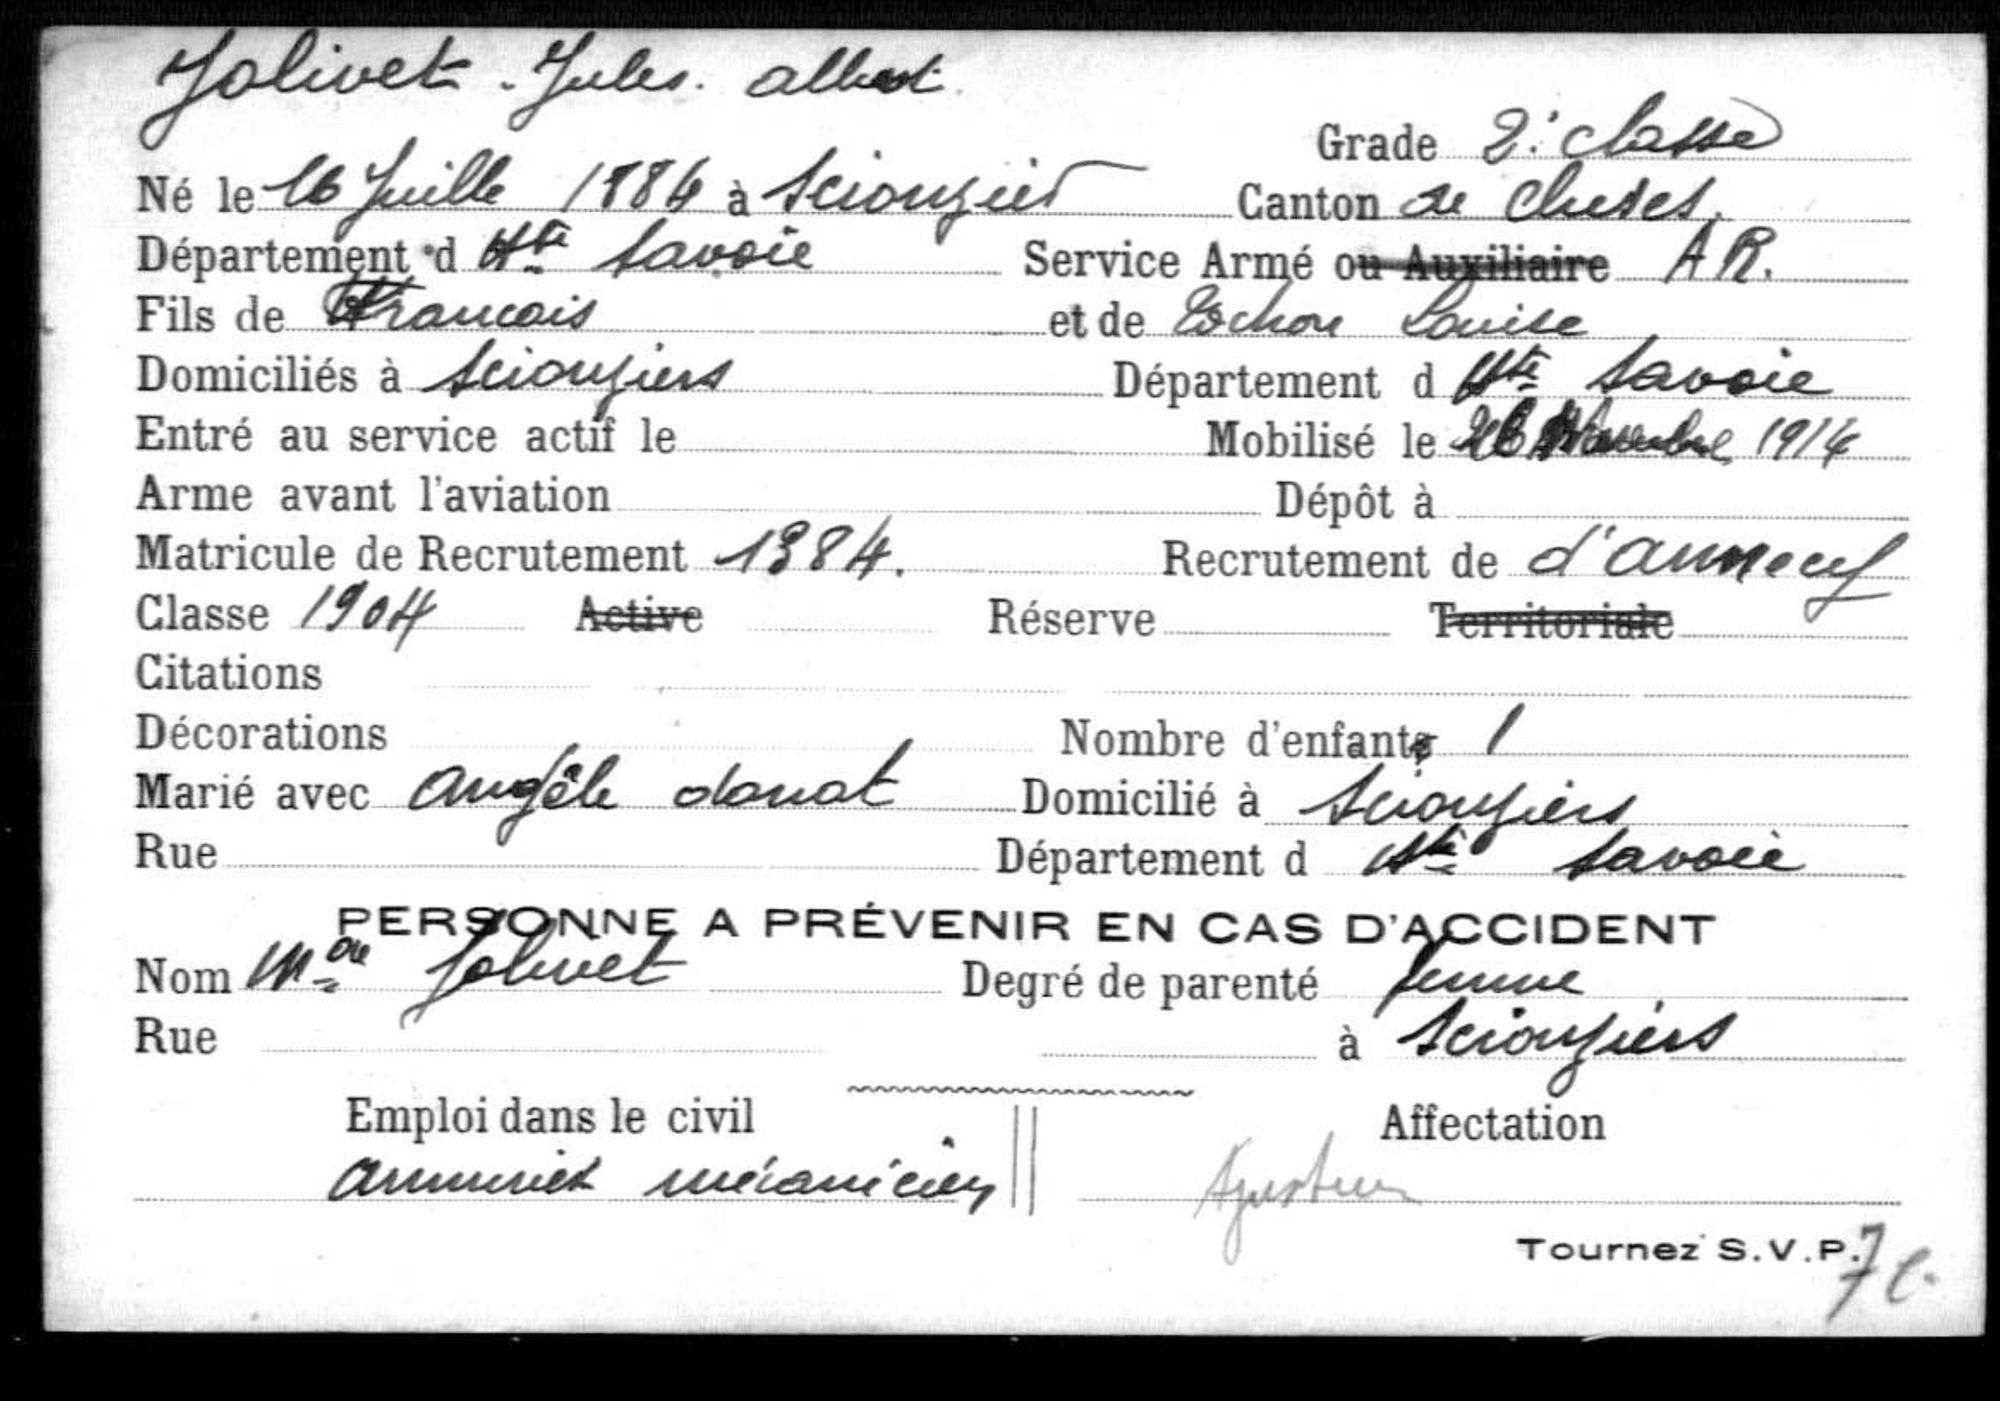 Jolivet - Jules. albert
Grade 2e classe
Né le 16 Juille 1884 à Scionzier Canton de Cluses,
Département d Hte Savoie Service Armé ou Auxiliaire A R.
Fils de Francois et de Tochon Louise
Domiciliés à Scionziers Département d Hte Savoie
Entré au service actif le Mobilisé le 1914
Arme avant l'aviation Dépôt à
Matricule de Recrutement 1384. Recrutement de d'annecy
Classe 1904 Active Réserve Territoriale
Citations
Décorations Nombre d'enfants 1
Marié avec Angèle donat Domicilié à Scionziers
Rue Département d Hte Savoie
PERSONNE A PRÉVENIR EN CAS D'ACCIDENT
Nom Jolivet Degré de parenté femme
Rue à Scionziers
Emploi dans le civil Affectation
armurier mécanicien Ajusteur
Tournez S.V.P.